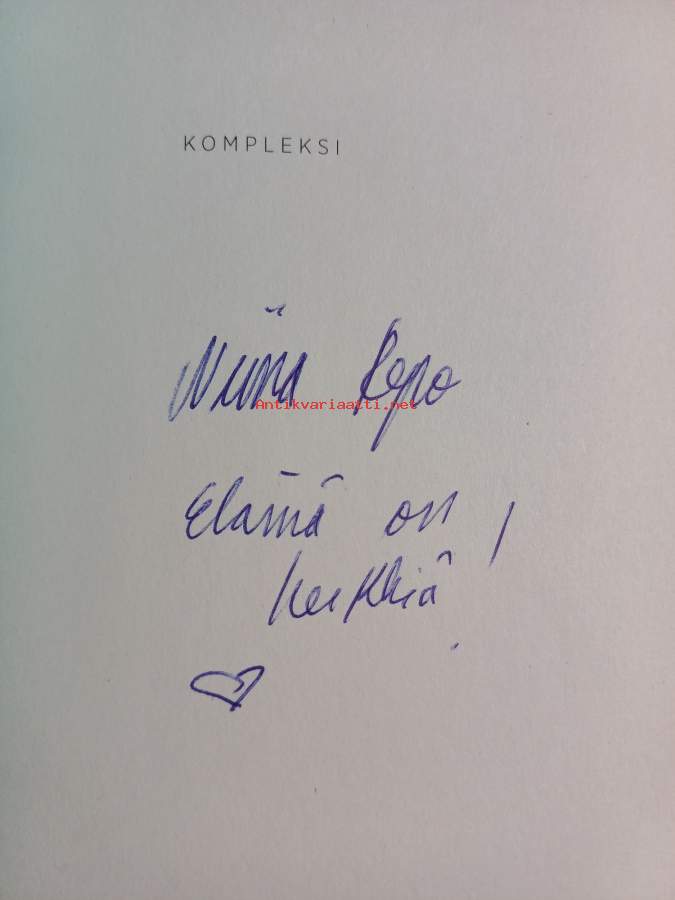 KOMPLEKSI
Niina Repo
Antikvariaatti.net
Elämä on
leikkiä!